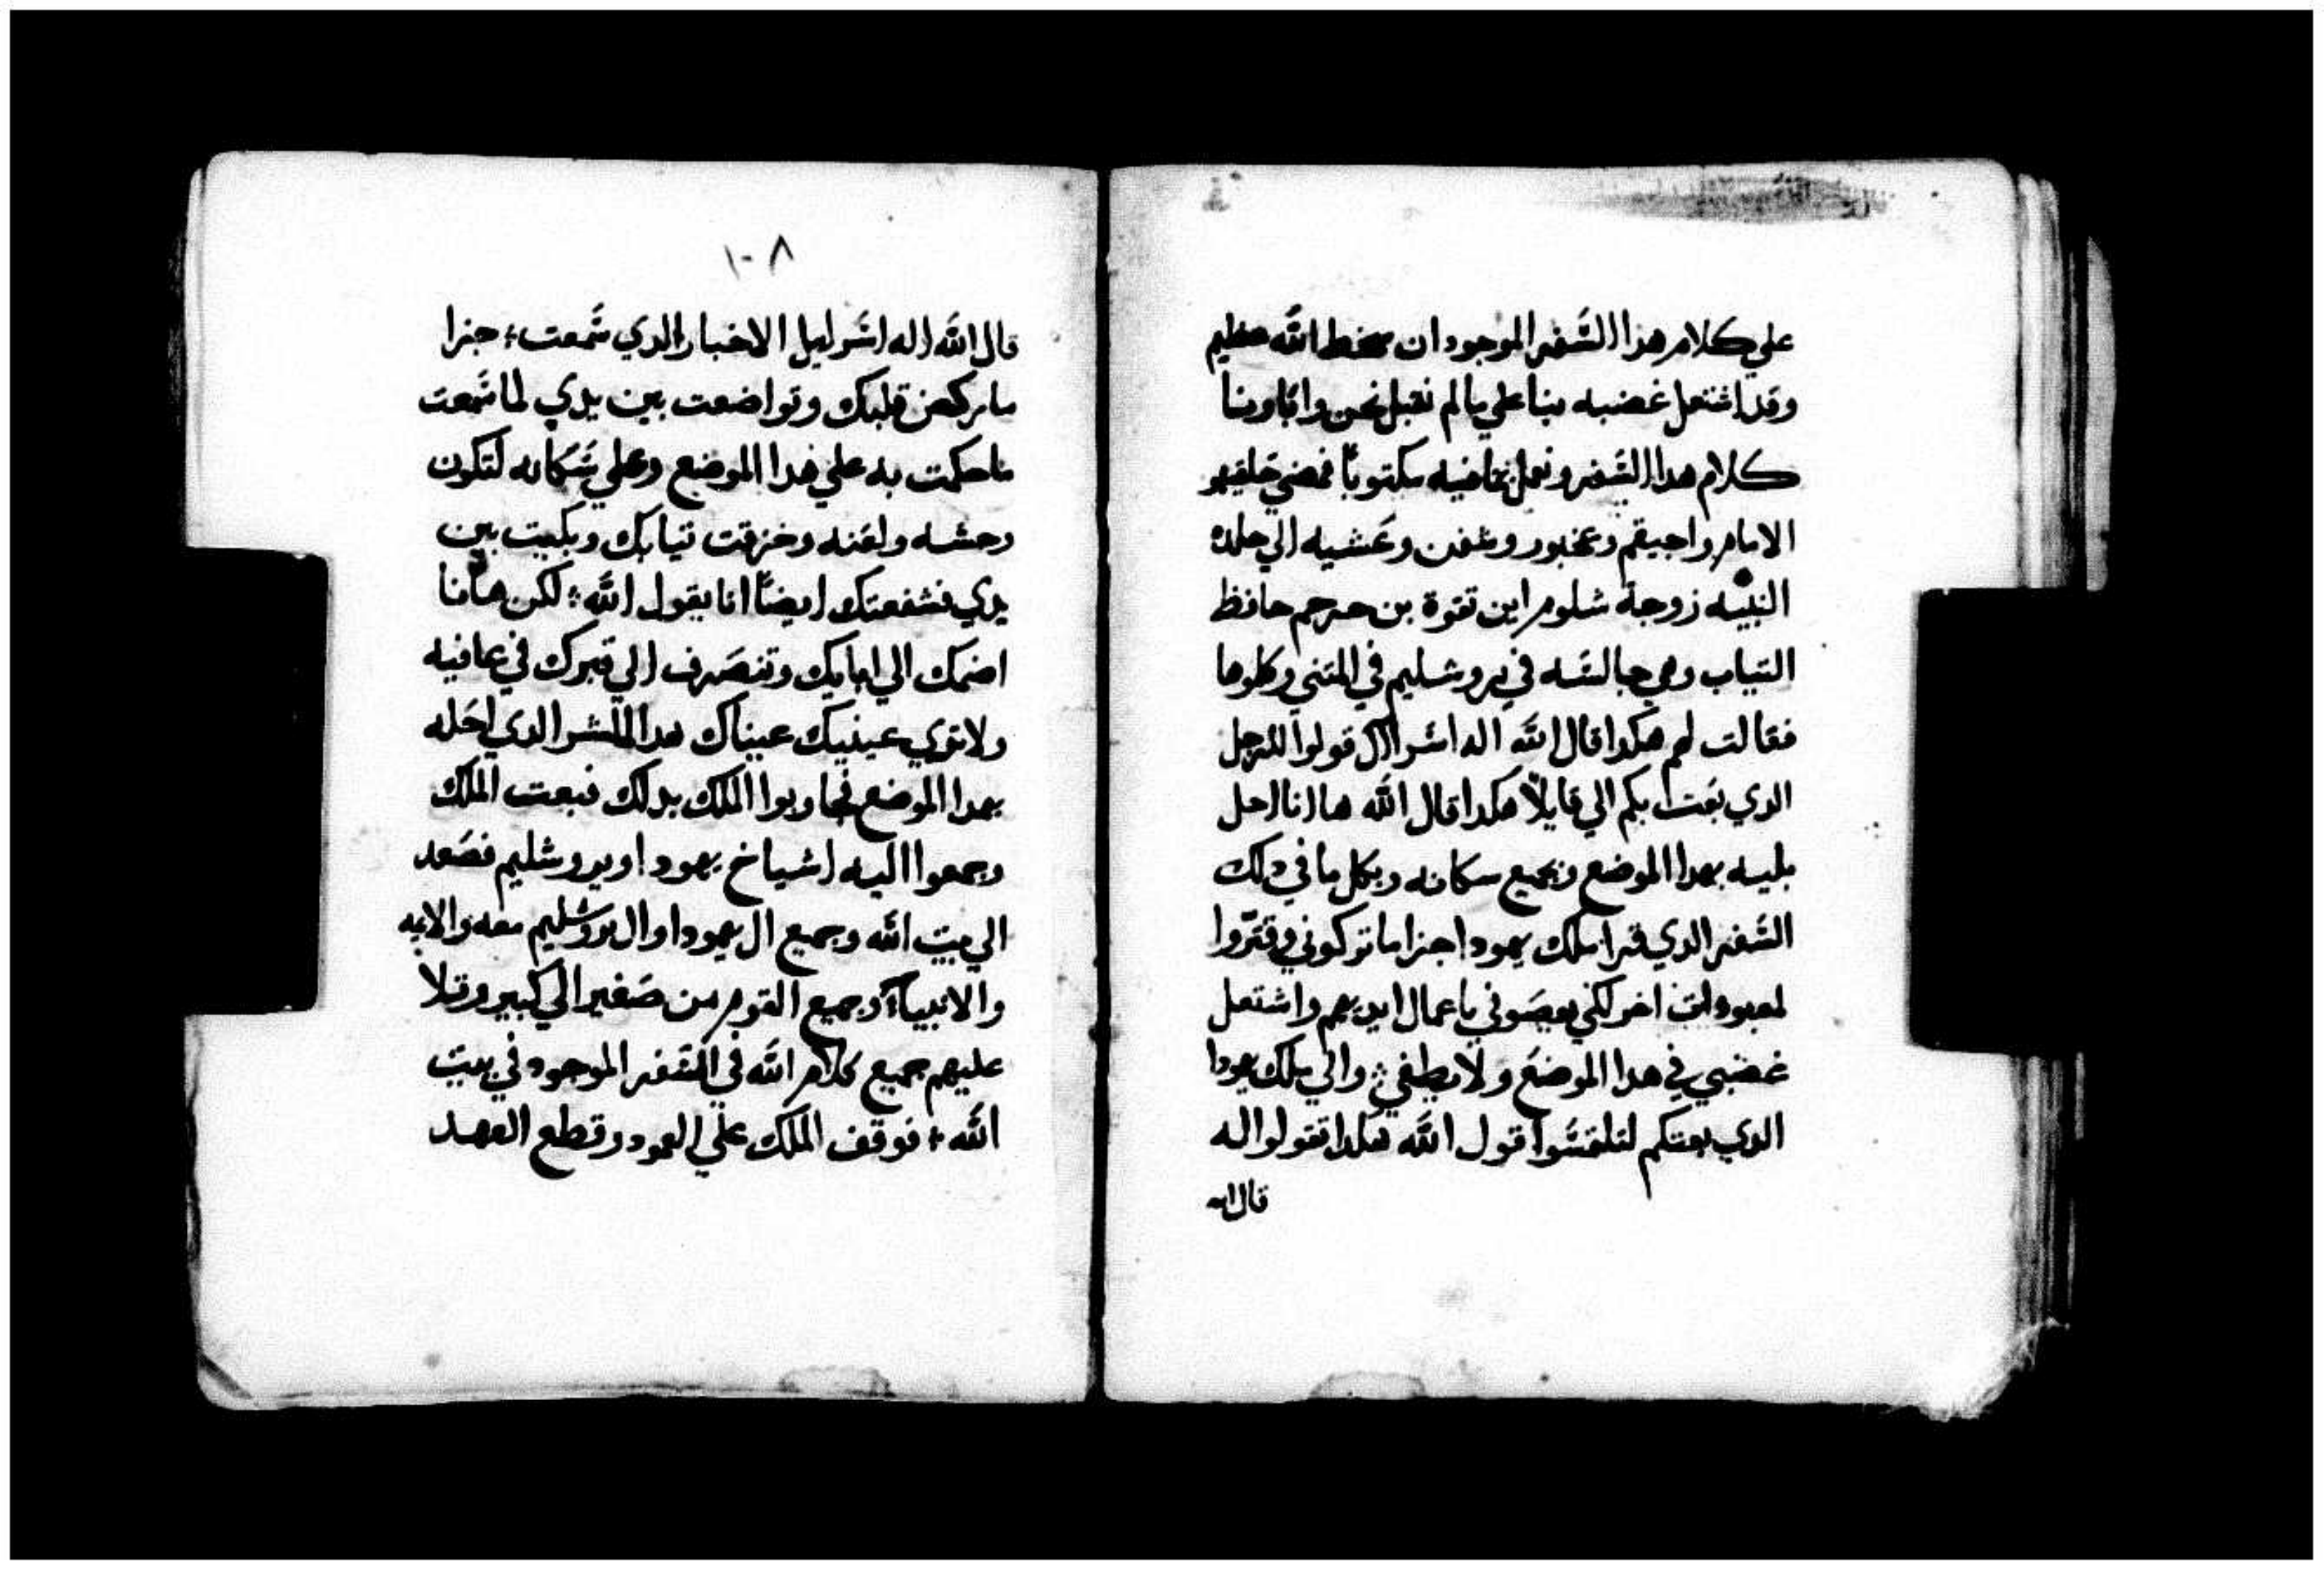 علي كلام هدا السفر الموجود ان سخط الله عظيم
وقد اشتعل غضبه بنا علي ما لم نقبل نحن وابّاونا
كلام هدا السفر ونعمل بما فيه مكتوبًا فمضي حلقيهو
الامام واحيقم وعخبور وشفن وعشيه الي حلده
النبيه زوجة شلوم ابن تقوة بن حرحم حافظ
التياب وهي جالسه في يروشليم في المتني وكلوها
فقالت لهم هكدا قال الله اله اسرال قولوا للرجل
الدي بعت بكم الي قايلاً هكدا قال الله هاانا احل
بليه بهدا الموضع وبجميع سكانه وبكل ما في دلك
السفر الدي قرا ملك يهودا جزا ما تركوني وقتروا
لمعبودات اخر لكي يعصوني باعمال ايديهم واشتعل
غضبي في هدا الموضع ولا يطفي والي ملك يهودا
الدي بعتكم لتلتمسوا قول الله هكدا تقولوا له
قال الله
١٠٨
قال الله اله اسراييل الاخبار الدي سمعت جزا
ما رك قلبك وتواضعت بين يدي لما سمعت
ما حكمت به علي هدا الموضع وعلي سكانه لتكون
وحشه ولعنه وخزقت تيابك وبكيت بين
يدي فشفعتك ايضاً انا يقول الله لكن هانا
اضمك الي ابايك وتنصرف الي قبرك في عافيه
ولا تري عينيك عيناك هدا الشر الدي احله
بهدا الموضع فجاوبوا الملك بدلك فبعت الملك
وجمعوا اليه اشياخ يهودا ويروشليم فصعد
الي بيت الله وجميع ال يهودا وال يروشليم معه والايمه
والانبيآء وجميع القوم من صغير الي كبير وتلا
عليهم جميع كلام الله في السفر الموجود في بيت
الله فوقف الملك علي العمود وقطع العهد